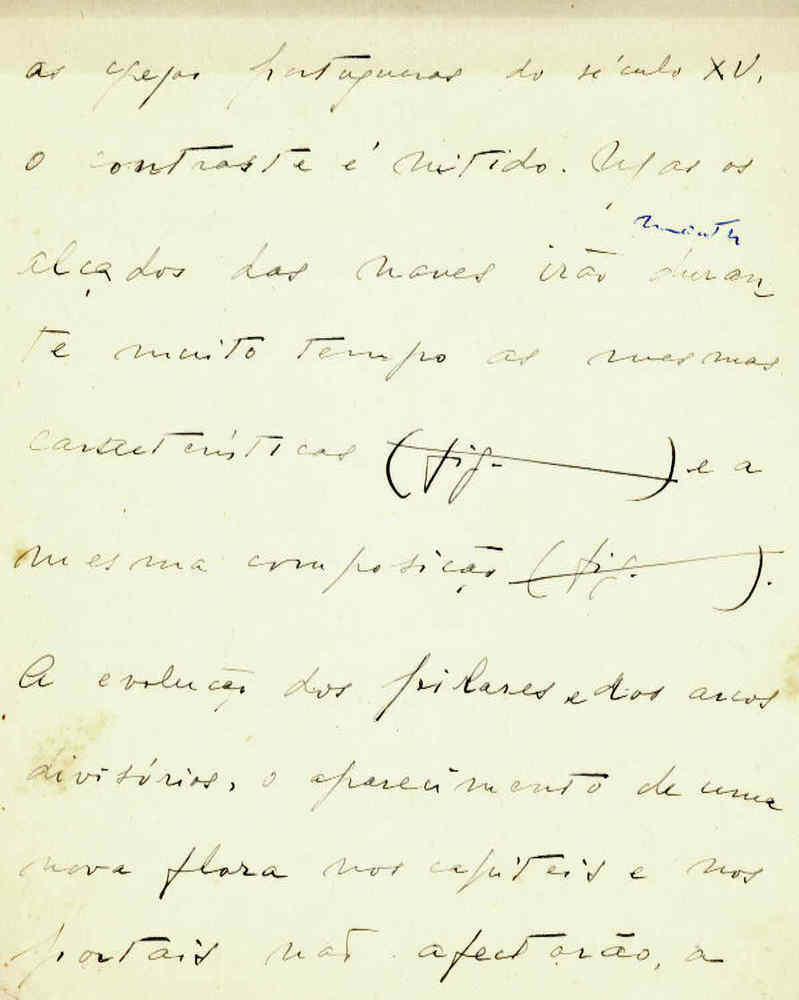 as igrejas portuguesas do século XV,
o contraste é nítido. Mas os
manter
alçados das naves irão duran-
te muito tempo as mesmas
características (fig. ) e a
mesma composição (fig. ).
A evolução dos pilares e dos arcos
divisórios, o aparecimento de uma
nova flora nos capiteis e nos
portais não afectarão, a